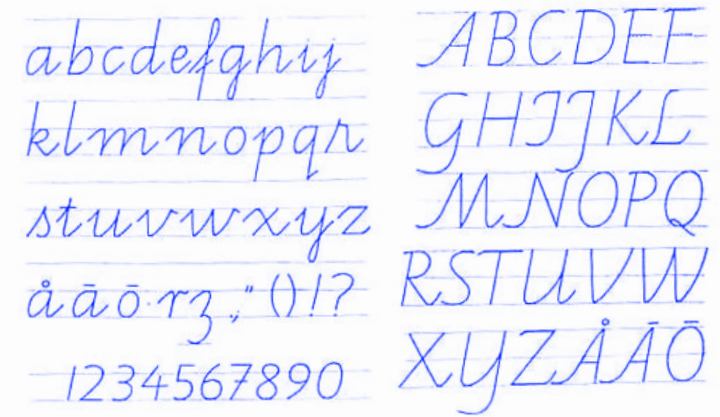 abcdefghij
klmnopqr
stuvwxyz
åāō rz.,"()!?
1234567890
ABCDEF
GHIJKL
MNOPQ
RSTUVW
XYZÅĀŌ